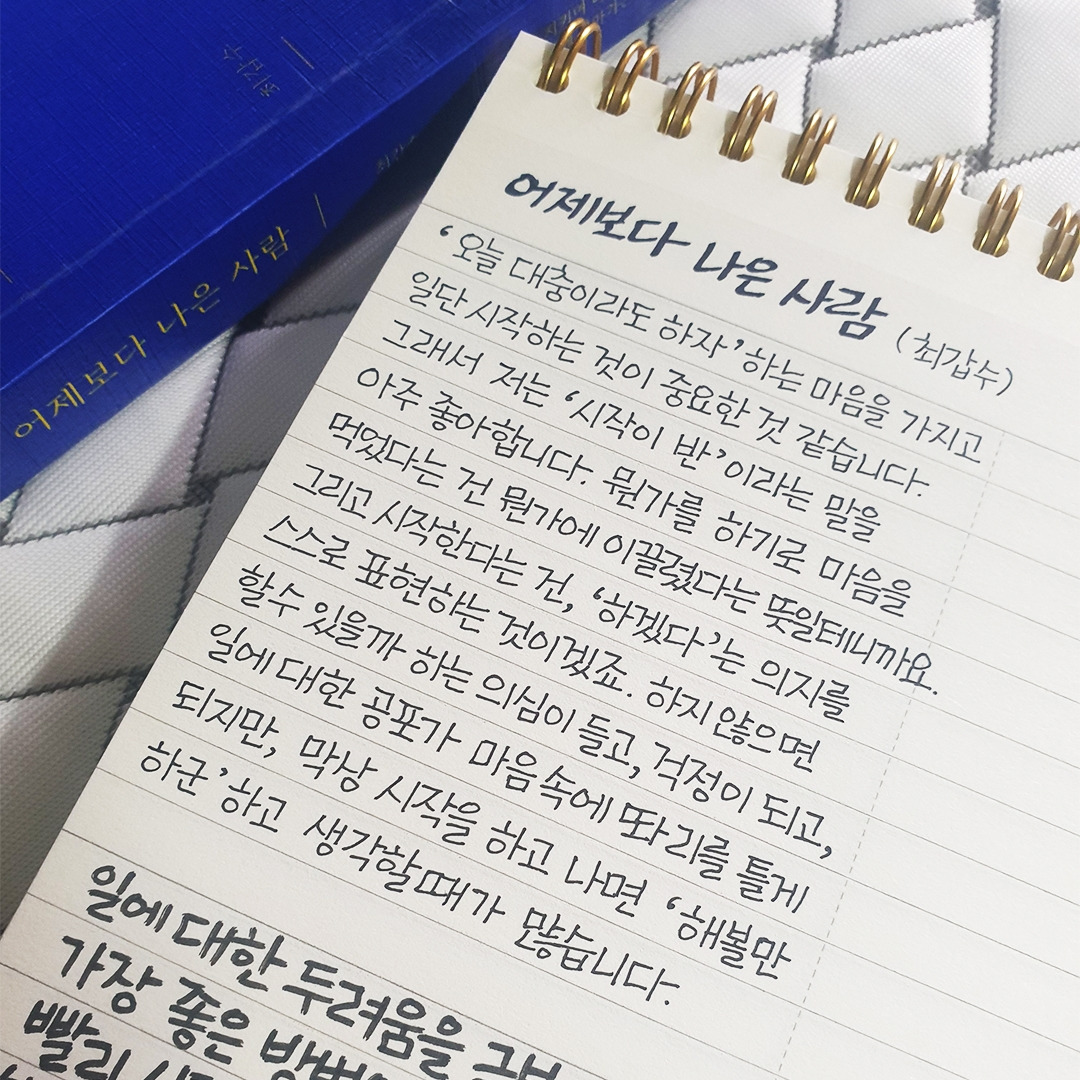 최갑수
어제보다 나은 사람
어제보다 나은 사람 (최갑수)
‘오늘 대충이라도 하자’ 하는 마음을 가지고
일단 시작하는 것이 중요한 것 같습니다.
그래서 저는 ‘시작이 반’이라는 말을
아주 좋아합니다. 뭔가를 하기로 마음을
먹었다는 건 뭔가에 이끌렸다는 뜻일테니까요.
그리고 시작한다는 건, ‘하겠다’는 의지를
스스로 표현하는 것이겠죠. 하지 않으면
할 수 있을까 하는 의심이 들고, 걱정이 되고,
일에 대한 공포가 마음 속에 똬리를 틀게
되지만, 막상 시작을 하고 나면 ‘해볼만
하군’ 하고 생각할 때가 많습니다.
일에 대한 두려움을
가장 좋은
빨리